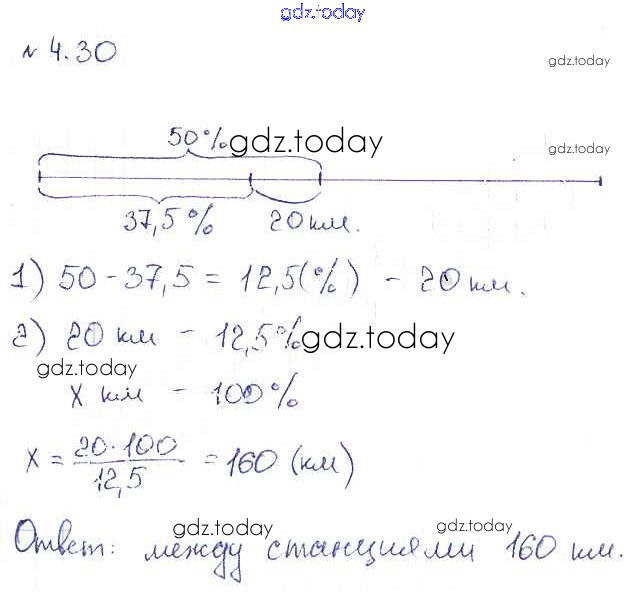 gdz.today
№ 4.30
gdz.today
50% gdz.today
gdz.today
37,5% 20 км.
1) 50 - 37,5 = 12,5(%) - 20 км.
2) 20 км - 12,5% gdz.today
gdz.today
x км - 100%
x = 20·100 / 12,5 = 160 (км)
gdz.today gdz.today
Ответ: между станциями 160 км.